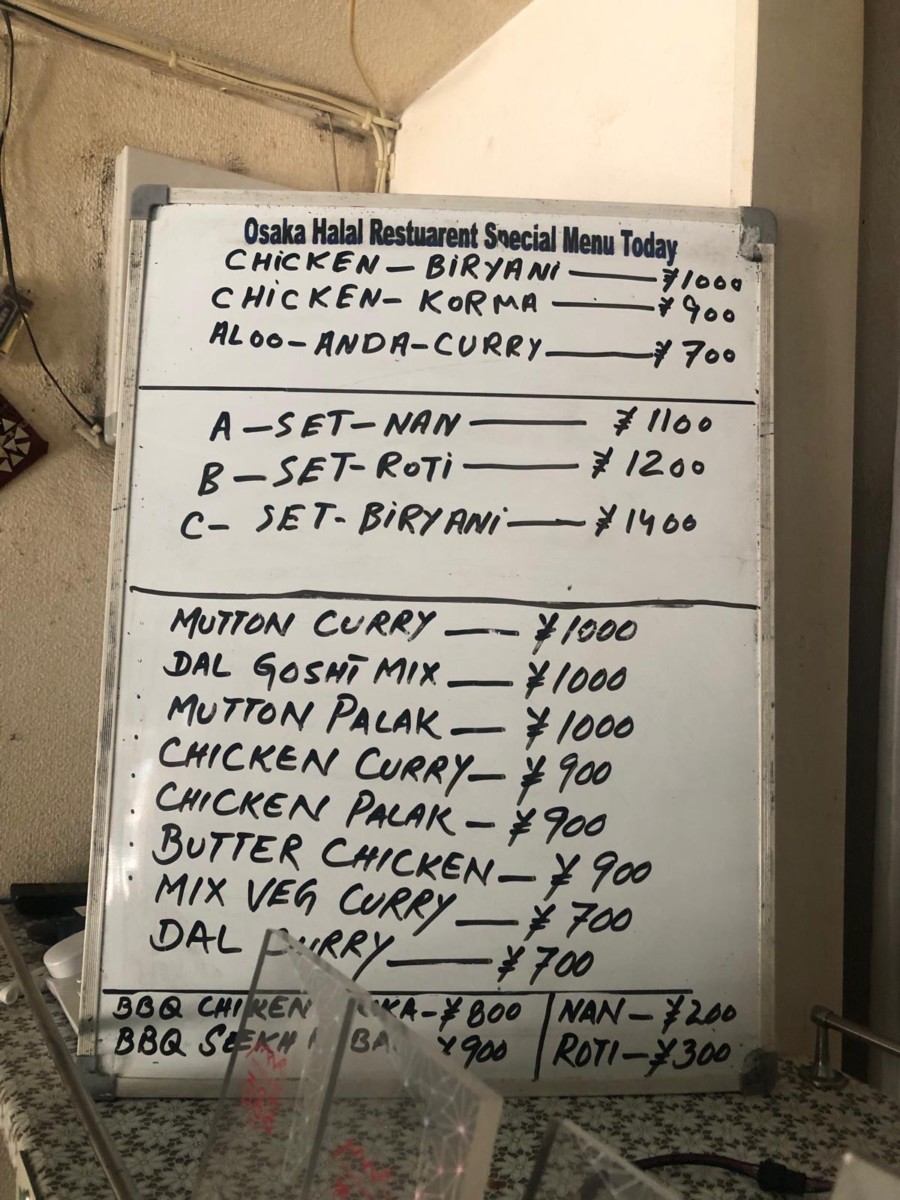 Osaka Halal Restuarent Special Menu Today
CHICKEN - BIRYANI — ¥1000
CHICKEN - KORMA — ¥900
ALOO - ANDA - CURRY — ¥700
A - SET - NAN — ¥1100
B - SET - ROTI — ¥1200
C - SET - BIRYANI — ¥1400
MUTTON CURRY — ¥1000
DAL GOSHT MIX — ¥1000
MUTTON PALAK — ¥1000
CHICKEN CURRY — ¥900
CHICKEN PALAK — ¥900
BUTTER CHICKEN — ¥900
MIX VEG CURRY — ¥700
DAL CURRY — ¥700
BBQ CHICKEN - ¥800 | NAN - ¥200
BBQ SEEKH ¥900 | ROTI - ¥300